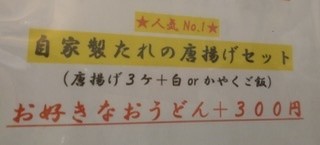 ★人気No.1★
自家製たれの唐揚げセット
(唐揚げ3ケ+白orかやくご飯)
お好きなおうどん+300円